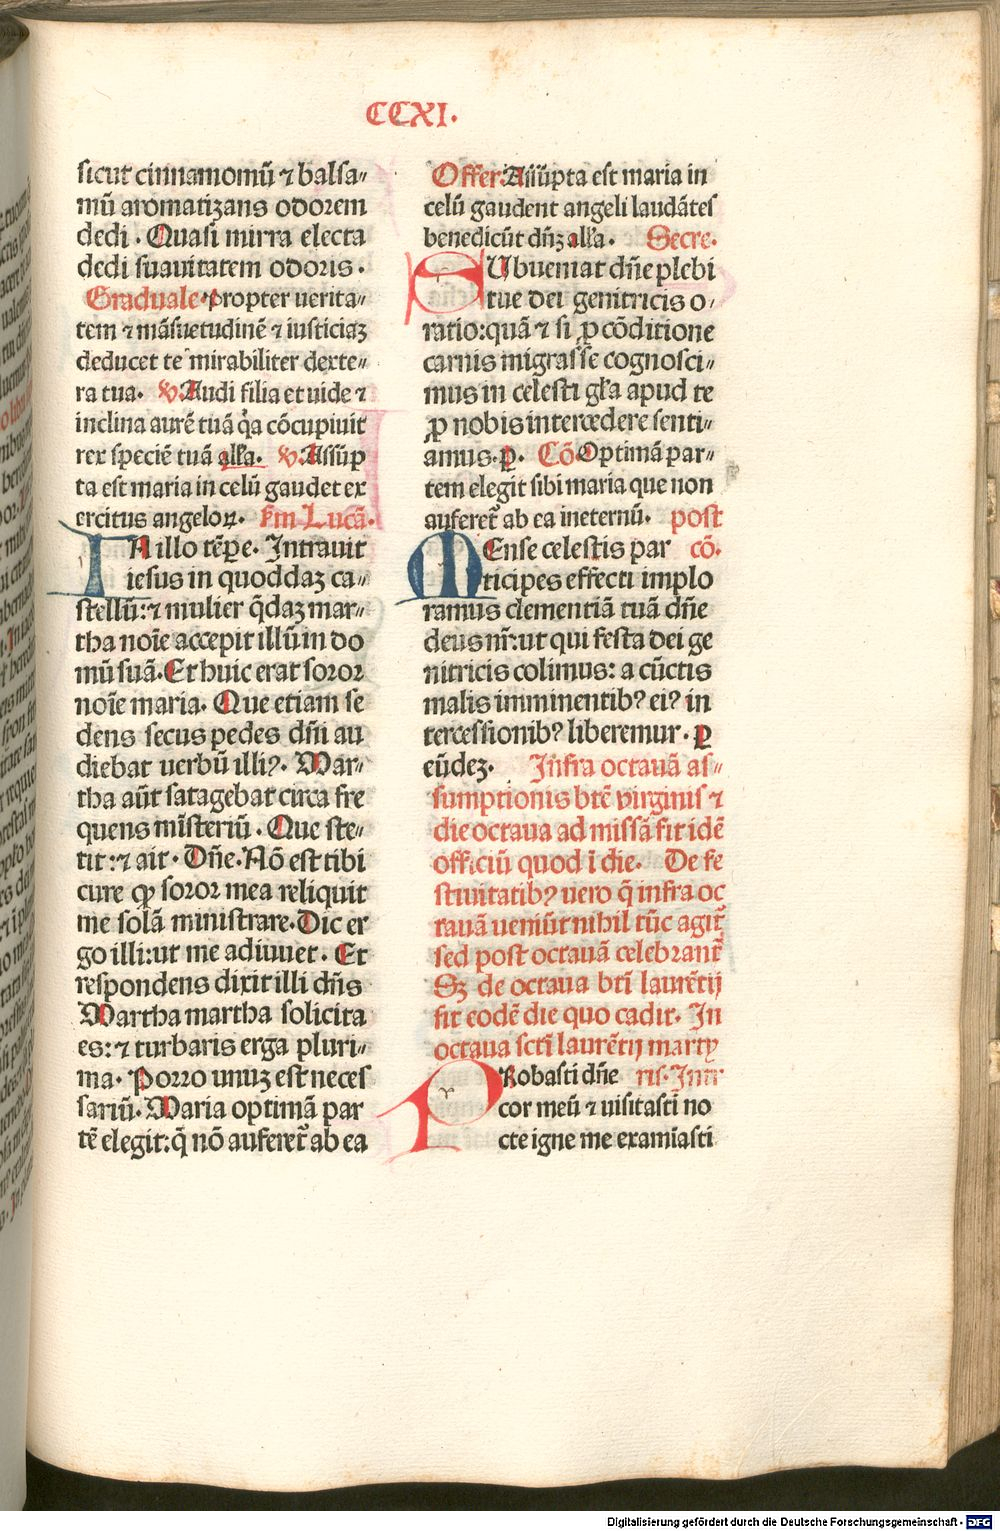 CCXI.
sicut cinnamomū ⁊ balsa⸗
mū aromatizans odorem
dedi. Quasi mirra electa
dedi suauitatem odoris.
Graduale. propter uerita⸗
tem ⁊ māsuetudinē ⁊ iusticiaꝫ
deducet te mirabiliter dexte⸗
ra tua. ꝟ. Audi filia et uide ⁊
inclina aurē tuā q̇a cōcupiuit
rex speciē tuā alła. ꝟ. Assūp
ta est maria in celū gaudet ex
ercitus angeloꝝ. ẜm Lucā.
IN illo tēꝑe. Intrauit
iesus in quoddaꝫ ca⸗
stellū: ⁊ mulier q̄daꝫ mar⸗
tha noīe accepit illū in do
mū suā. Et huic erat soror
noīe maria. Que etiam se
dens secus pedes dn̄i au
diebat uerbū illiꝰ. Mar⸗
tha aūt satagebat circa fre
quens mīsteriū. Que ste⸗
tit: ⁊ ait. Dn̄e. Nō est tibi
cure ꝙ soror mea reliquit
me solā ministrare. Dic er
go illi: ut me adiuuet. Et
respondens dixit illi dn̄s
Martha martha solicita
es: ⁊ turbaris erga pluri⸗
ma. Porro unuꝫ est neces
sariū. Maria optimā par
tē elegit: q̄ nō auferet̄ ab ea
Offer. Assūpta est maria in
celū gaudent angeli laudātes
benedicūt dn̄ꝫ alła. Secre.
SUbueniat dn̄e plebi
tue dei genitricis o⸗
ratio: quā ⁊ si ꝓ cōditione
carnis migrasse cognosci⸗
mus in celesti gła apud te
ꝓ nobis intercedere senti⸗
amus. ꝑ. Cō. Optimā par⸗
tem elegit sibi maria que non
auferet̄ ab ea ineternū. post
MEnse celestis par cō.
ticipes effecti implo
ramus clementiā tuā dn̄e
deus nr̄: ut qui festa dei ge
nitricis colimus: a cūctis
malis imminentibꝰ eiꝰ in
tercessionibꝰ liberemur. ꝑ
eūdeꝫ. Infra octauā as⸗
sumptionis btē uirginis ⁊
die octaua ad missā fit idē
officiū quod ī die. De fe
stiuitatibꝰ uero q̄ infra oc
tauā ueniūt nihil tūc agit̄
sed post octauā celebrant̄
Sꝫ de octaua bti laurētij
fit eodē die quo cadit. In
octaua scti laurētij marty
PRobasti dn̄e ris. Intr
cor meū ⁊ uisitasti no
cte igne me examīasti
Digitalisierung gefördert durch die Deutsche Forschungsgemeinschaft - DFG